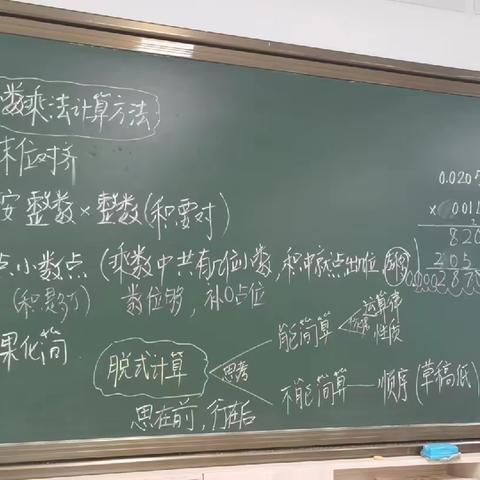 数乘法计算方法
末位对齐
按整数×整数(积要对)
点小数点(乘数中共有几位小数,积中就点出几位
(积是多少) 数位够,补0占位
果化简
脱式计算
思考
能简算
运算律
性质
不能简算 顺序(草稿纸)
思在前,行在后
0.0205
×
820
205